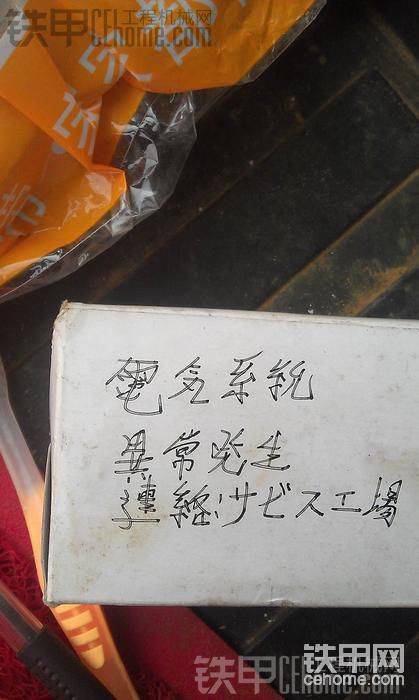 铁甲CEL工程机械网
cehome.com
電気系統
異常発生
連絡サビス工場
铁甲网
cehome.com